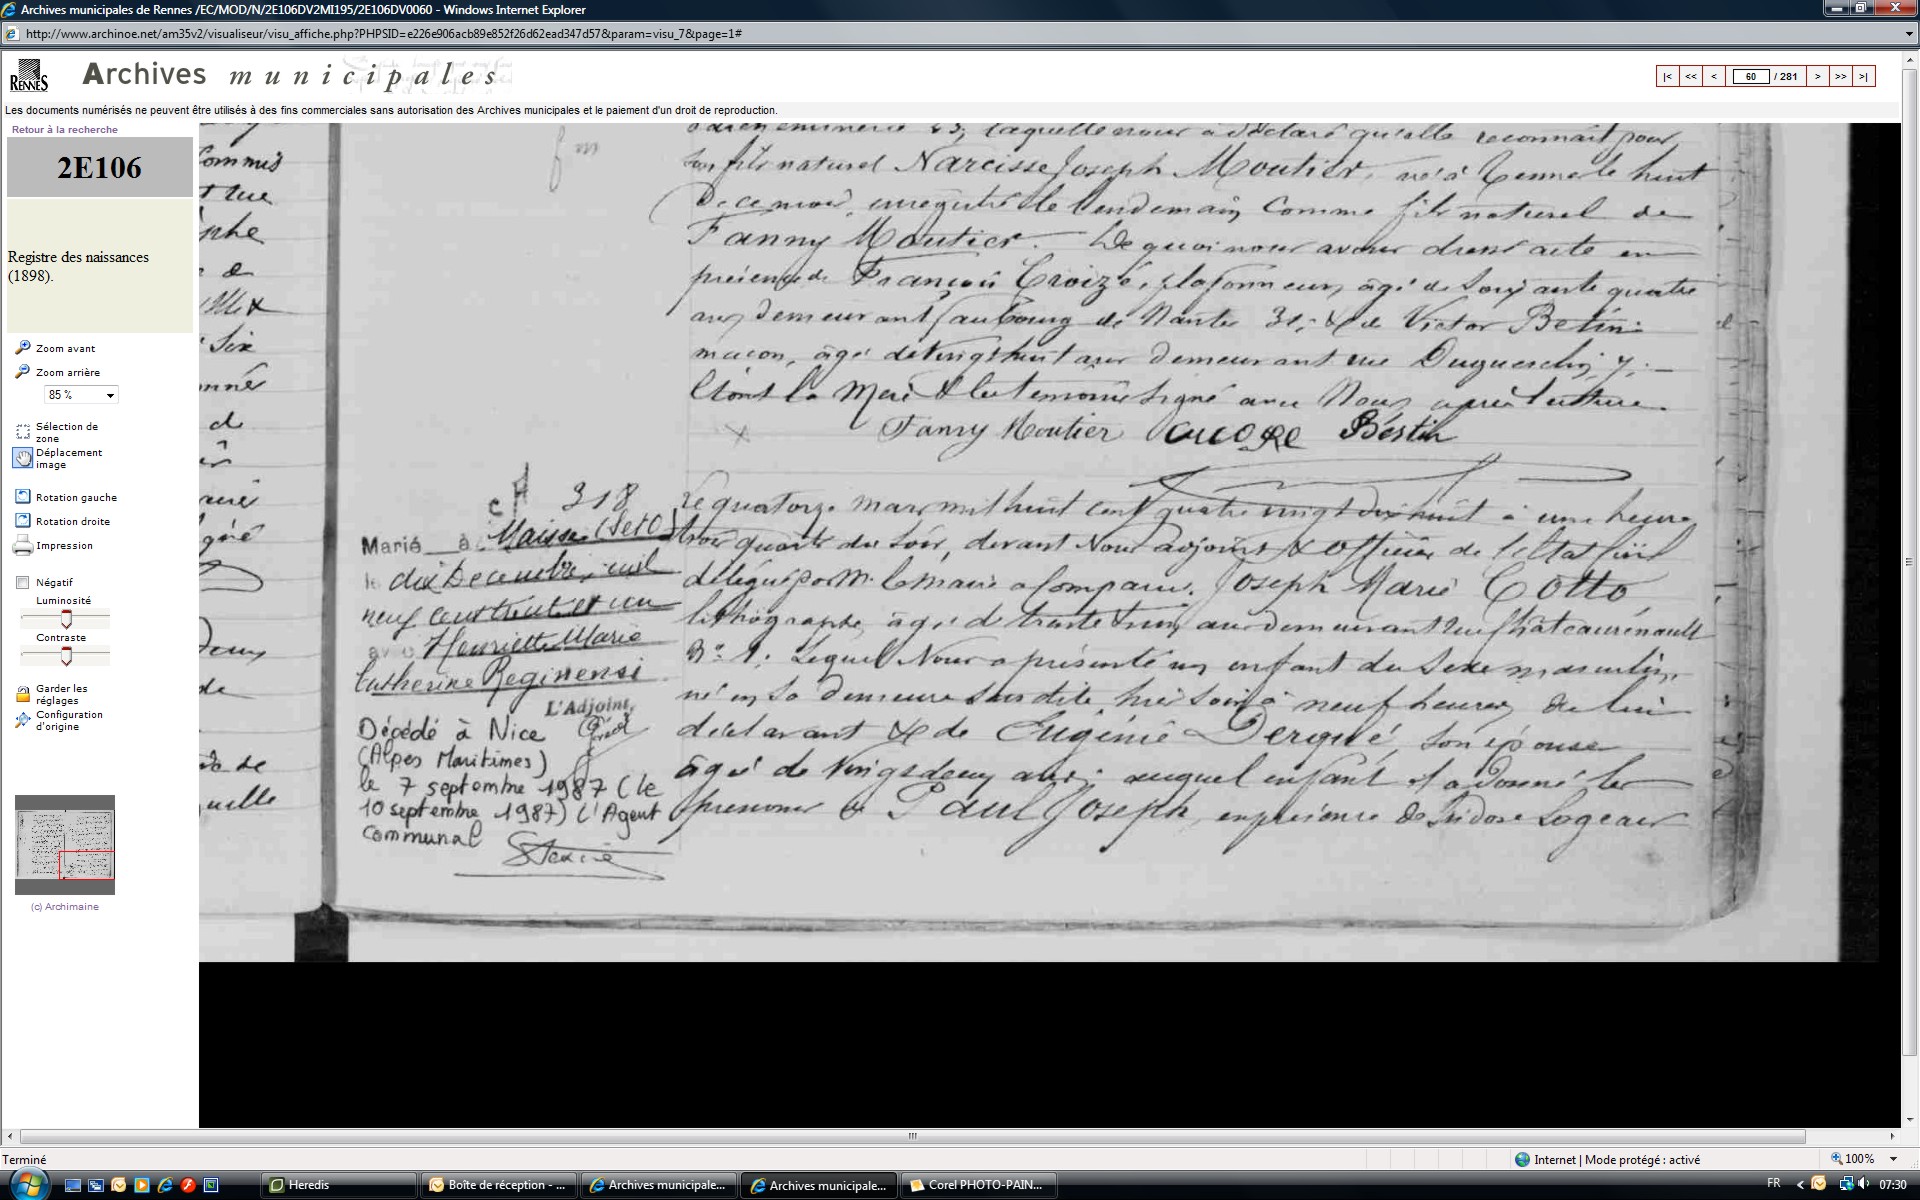 Archives municipales de Rennes /EC/MOD/N/2E106DV2MI195/2E106DV0060 - Windows Internet Explorer
http://www.archinoe.net/am35v2/visualiseur/visu_affiche.php?PHPSID=e226e906acb89e852f26d62ead347d57&param=visu_7&page=1#
RENNES
Archives municipales
|< << < 60 / 281 > >> >|
Les documents numérisés ne peuvent être utilisés à des fins commerciales sans autorisation des Archives municipales et le paiement d'un droit de reproduction.
Retour à la recherche
2E106
Registre des naissances
(1898).
Zoom avant
Zoom arrière
85 %
Sélection de
zone
Déplacement
image
Rotation gauche
Rotation droite
Impression
Négatif
Luminosité
Contraste
Garder les
réglages
Configuration
d'origine
(c) Archimaine
laquelle nous a déclaré qu'elle reconnait pour
son fils naturel Narcisse Joseph Moutier, né à Rennes le huit
Décembre, enregistré le lendemain comme fils naturel de
Fanny Moutier. De quoi nous avons dressé acte en
présence de François Croizé, plafonneur, âgé de soixante quatre
ans, demeurant faubourg de Nantes 31, & de Victor Betin
maçon, âgé de vingt huit ans demeurant rue Duguesclin, 7,
Et ont la Mère & les témoins signé avec Nous après lecture.
Fanny Moutier Croizé Béstin
318
Marié à Maisse (S et O)
le dix Décembre mil
neuf cent trente et un
avec Henriette Marie
Catherine Reginensi
L'Adjoint,
Décédé à Nice
(Alpes Maritimes)
le 7 septembre 1987 (le
10 septembre 1987) L'Agent
Communal
Le quatorze mars mil huit cent quatre vingt dix huit à une heure
trois quarts du soir, devant Nous adjoint & officier de l'Etat Civil
délégué par M. le Maire a comparu Joseph Marie Cotto
lithographe, âgé de trente trois ans demeurant rue Châteaurenault
N° 1. Lequel Nous a présenté un enfant du sexe masculin,
né en sa demeure susdite, hier soir à neuf heures de lui
déclarant & de Eugénie Derqué, son épouse
âgée de vingt deux ans; auquel enfant il a donné les
prénoms de Paul Joseph, en présence de Isidore Logeais
Terminé
Internet | Mode protégé : activé
100%
Heredis
Boîte de réception - ...
Archives municipale...
Archives municipale...
Corel PHOTO-PAIN...
FR
07:30